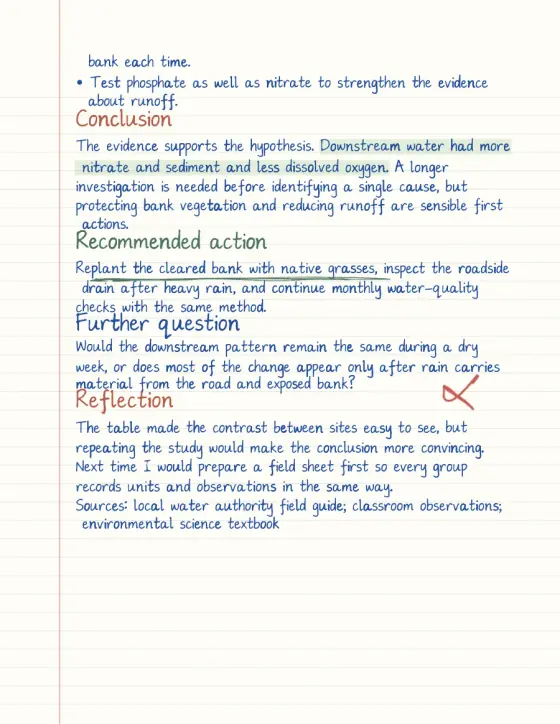 bank each time.
• Test phosphate as well as nitrate to strengthen the evidence
about runoff.
Conclusion
The evidence supports the hypothesis. Downstream water had more
nitrate and sediment and less dissolved oxygen. A longer
investigation is needed before identifying a single cause, but
protecting bank vegetation and reducing runoff are sensible first
actions.
Recommended action
Replant the cleared bank with native grasses, inspect the roadside
drain after heavy rain, and continue monthly water-quality
checks with the same method.
Further question
Would the downstream pattern remain the same during a dry
week, or does most of the change appear only after rain carries
material from the road and exposed bank?
Reflection
The table made the contrast between sites easy to see, but
repeating the study would make the conclusion more convincing.
Next time I would prepare a field sheet first so every group
records units and observations in the same way.
Sources: local water authority field guide; classroom observations;
environmental science textbook